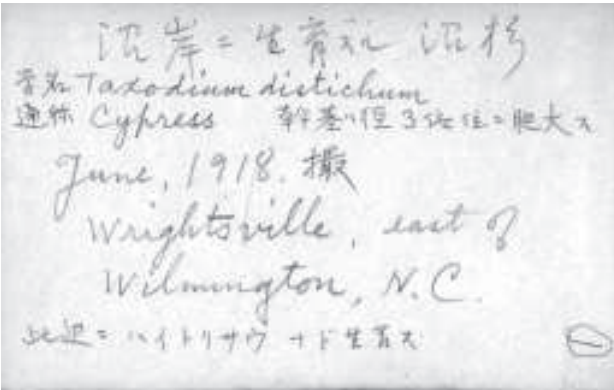 沼岸ニ生育セル 沼杉
学名 Taxodium distichum
通称 Cypress 幹基ハ径3倍位ニ肥大ス
June, 1918. 撮
Wrightsville, east of
Wilmington, N.C.
此辺ニハイトリサウ ナド生育ス